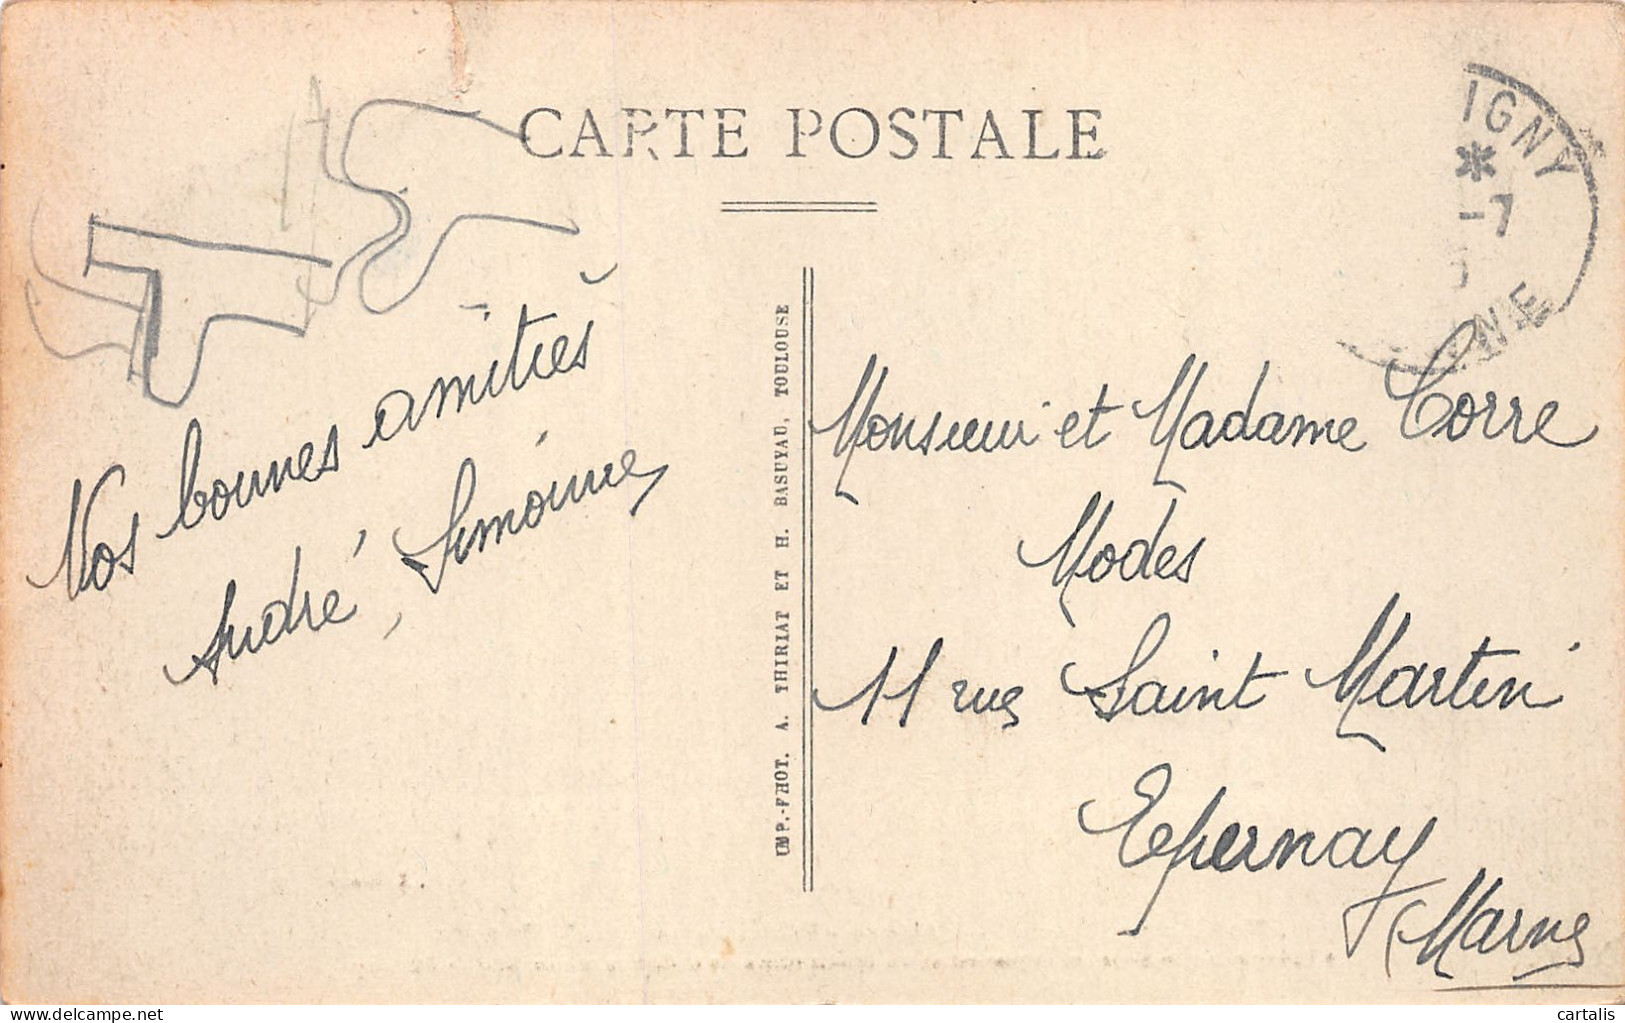 CARTE POSTALE
IGNY
-7
NE
Nos bonnes amitiés
André, Simonne
IMP.-PHOT. A. THIRIAT ET H. BASUYAU, TOULOUSE
Monsieur et Madame Corre
Modes
11 rue Saint Martin
Epernay
(Marne
delcampe.net
cartalis